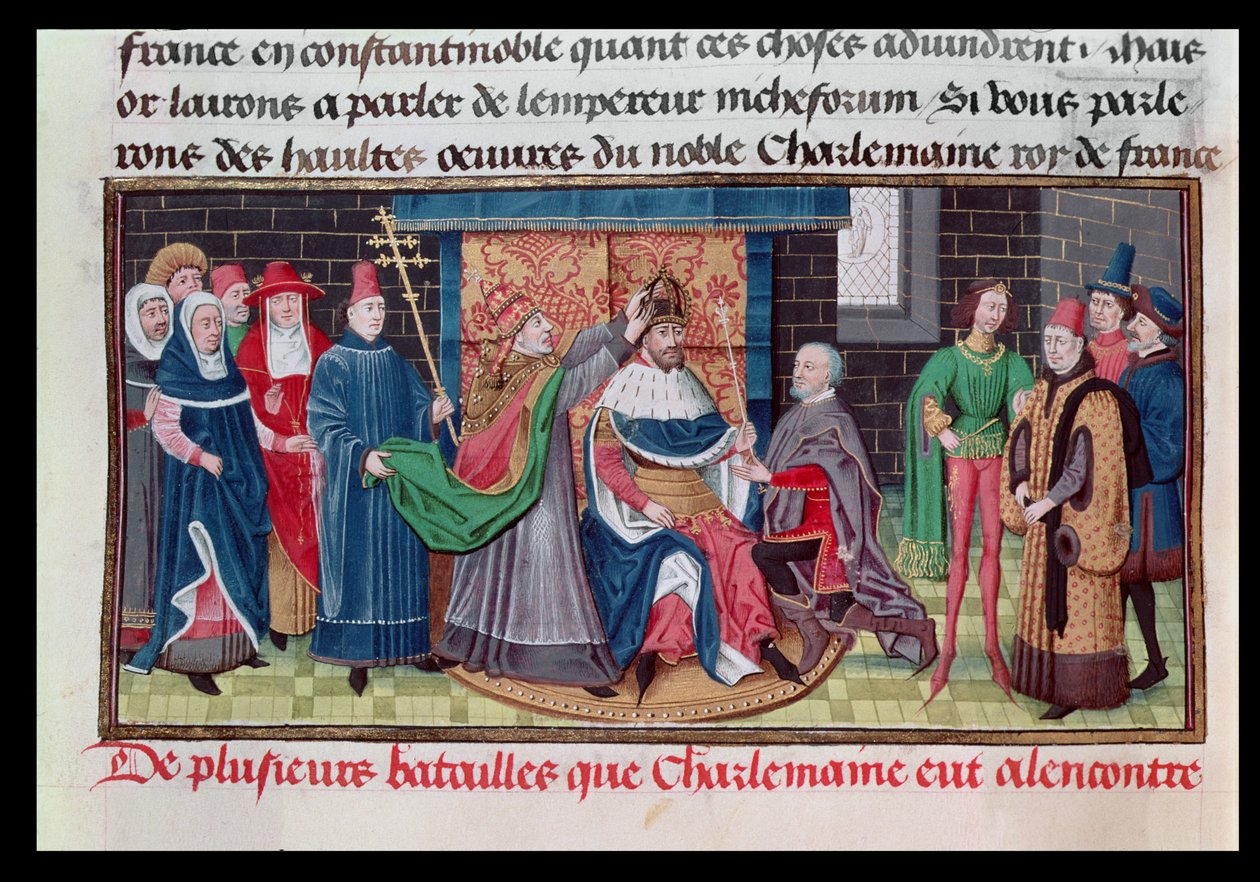 france en constantinoble quant ces choses aduindrent. / Mais
or lairons a parler de lempereur nicheforum / Si vous parle /
rons des haultes oeuures du noble Charlemaine roy de france
De plusieurs batailles que Charlemaine eut alencontre